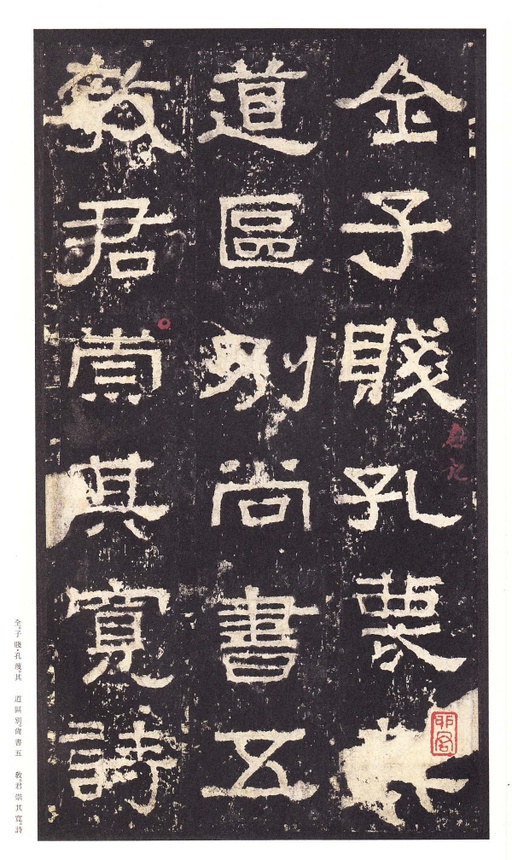 全子賤孔蔑其
道區別尚書五
教君崇其寬詩
全子賤孔蔑其 道區別尚書五 教君崇其寬詩